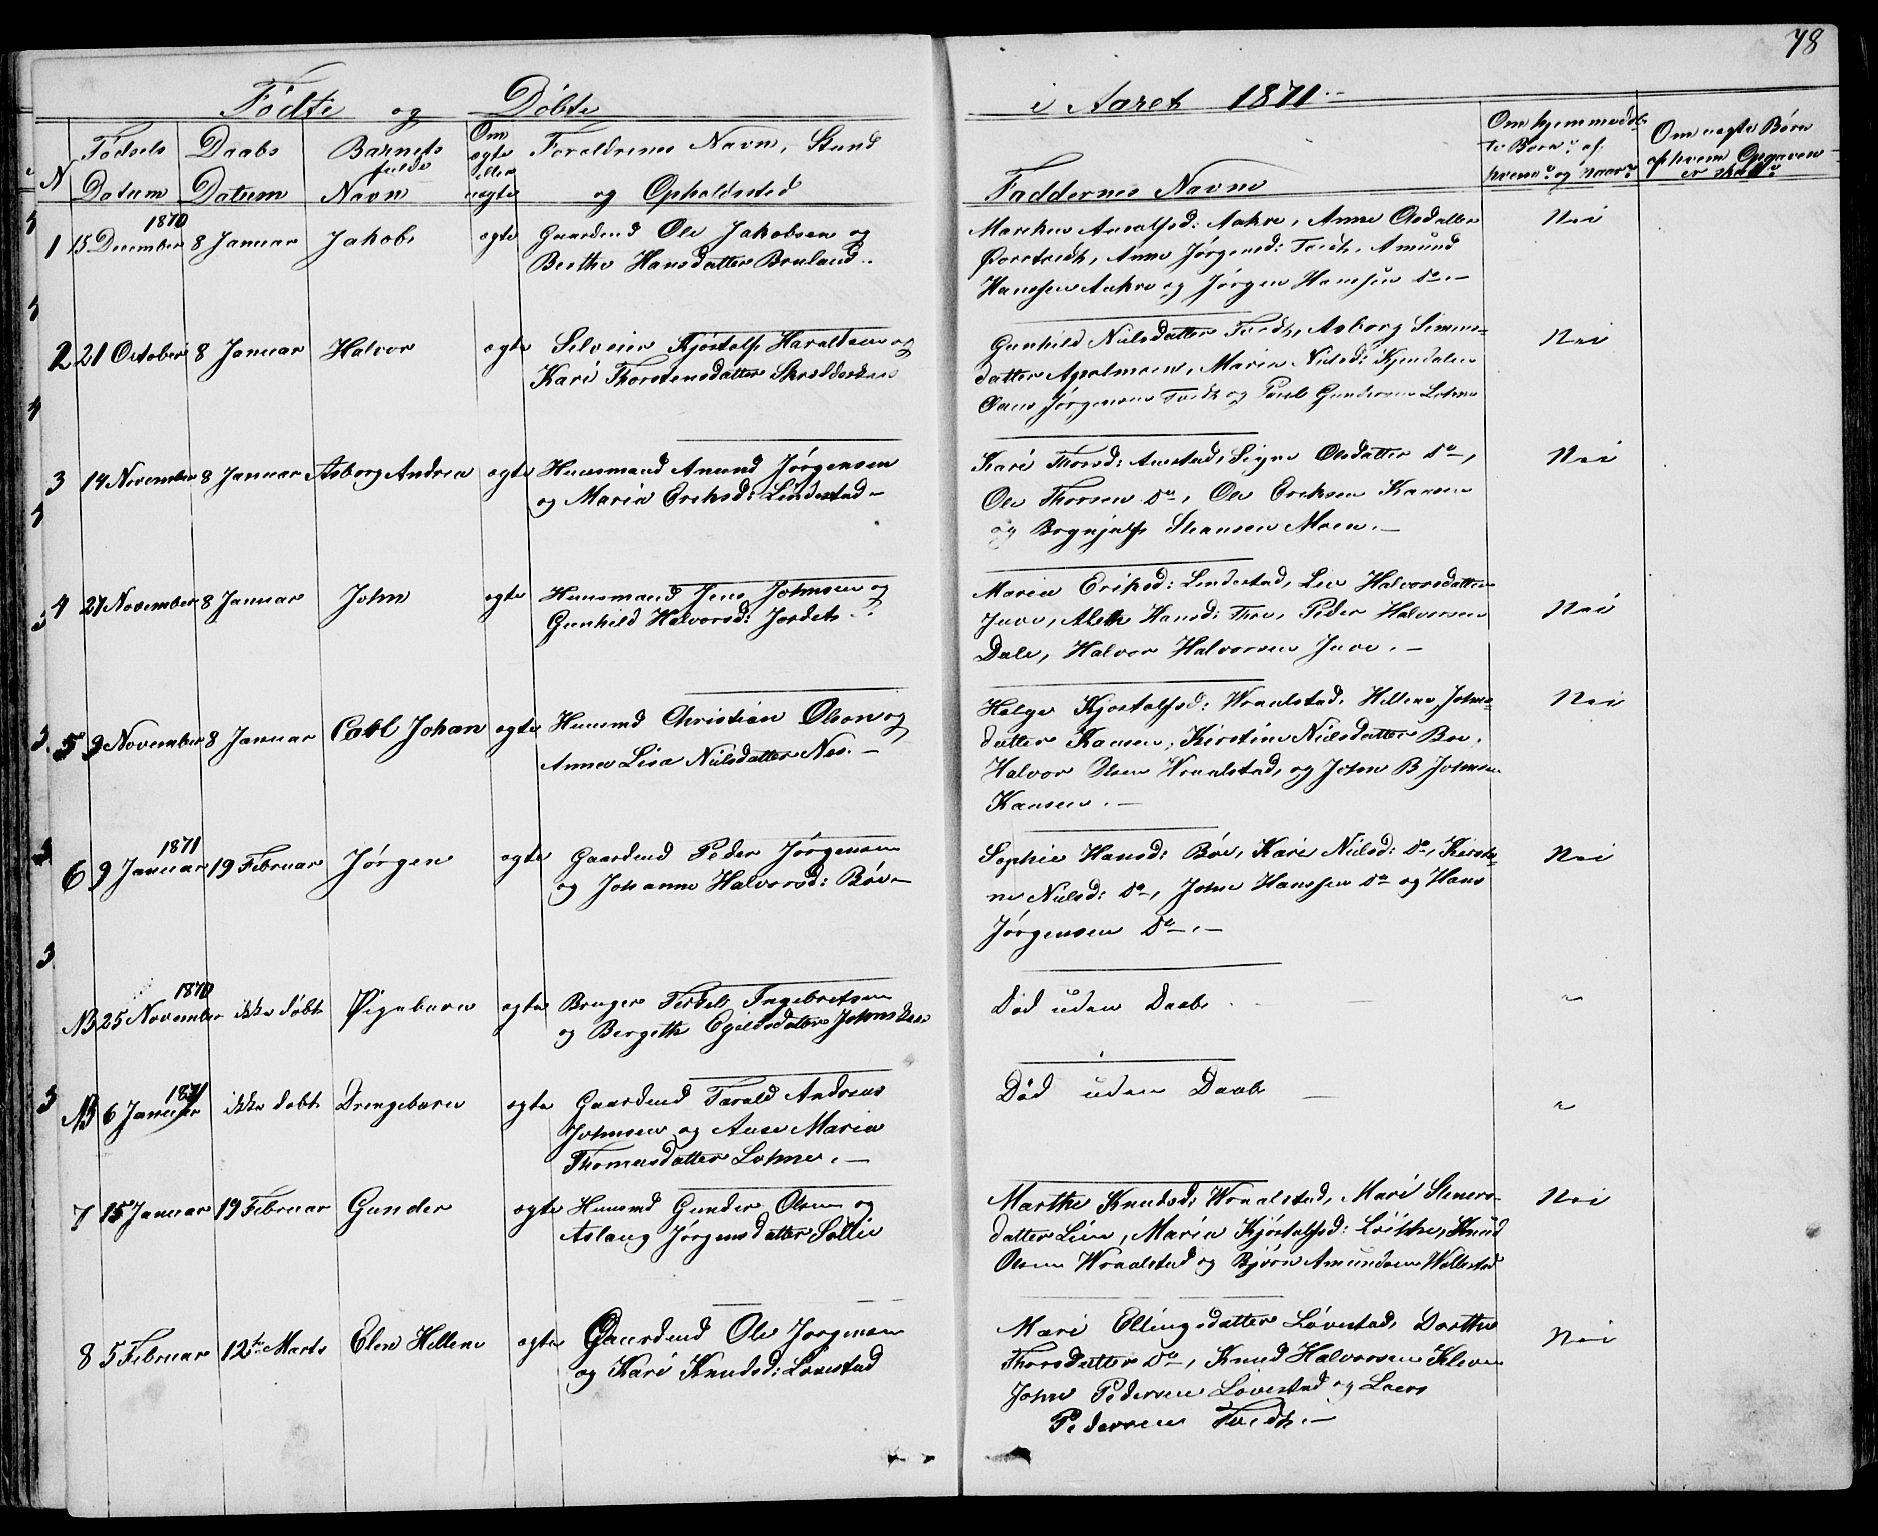 78
Födte og Döbte i Aaret 1871.
N
Födsels Datum
Daabs Datum
Barnets fulde Navn
Om ægte eller uægte
Forældrenes Navn, Stand og Opholdssted
Faddernes Navne
Om hjemmedöb- te Börn af hvem og naar
Om uægte Börn af hvem Opgaven er skeet
1870
1 15 December 8 Januar Jakob ægte Gaardmd Ole Jakobsen og
Berthe Hansdatter Bruland
Aakre, Anne Olsdatter
Anne Jörgensd: Tvedt, Amund
Hanssen Aakre og Jörgen Hanssen Do
Nei
2 21 October 8 Januar Halvor ægte Selveier Kjöstolf Haraldsen og
Kari Thorstensdatter
Gunhild Nielsdatter Tvedt, Asborg Simons-
datter Apalmoen, Maria Nielsd: Kjendalen
Jörgensen Tvedt og Poul Gundersen Lohne
Nei
3 14 November 8 Januar Asborg Andrea ægte Huusmand Amund Jörgensen
og Maria Eriksd: Lindestad
Kari Thorsd: Austad, Signe Olsdatter Do,
Ole Thorsen Do, Ole Eriksen Kaasen
og Moen.
Nei
4 27 November 8 Januar John ægte Huusmand Jens Johnsen og
Gunhild Halvorsd: Jordet
Maria Eriksd: Lindestad, Liv Halvorsdatter
Juve, Aleth Hansd: Peder Halvorsen
Dale, Halvor Halvorsen Juve.
Nei
5 9 November 8 Januar Carl Johan ægte Huusmd Christian Olson og
Anna Lisa Nielsdatter Nes.
Helge Kjöstolfsd: Wraalstad, Hellene Johns-
datter Kaasen, Kirstine Nielsdatter Böe,
Halvor Olsen Wraalstad, og John B Johnsen
Kaasen.
Nei
1871
6 9 Januar 19 Februar Jörgen ægte Gaardmd Peder Jörgensen
og Johanne Halvorsd: Böe
Sophie Hansd: Böe, Kari Nielsd: Do, Kirsti-
ne Nielsd: Do, John Hanssen Do og Hans
Jörgensen Do
Nei
1870
NB 25 November ikke döbt Pigebarn ægte Bruger Terkel Ingebretsen
og Bergithe Egilsdatter
Död uden Daab
1871
NB 6 Januar ikke döbt Drengebarn ægte Gaardmd Tarald Andreas
Johnsen og Anse Maria
Thomasdatter Lohne.
Död uden Daab
7 15 Januar 19 Februar Gunder ægte Huusmd Gunder Olsen og
Aslaug Jörgensdatter Sollie
Marthe Knudsd: Wraalstad, Mari Steners-
datter Lien, Maria Kjöstolfsd: Knud
Olsen Wraalstad og Björn Amundsen Wallestad
Nei
8 5 Februar 12te Marts Elen Hellene ægte Gaardmd Ole Jörgensen
og Kari Knudsd: Lövestad
Mari Ellingsdatter Lövestad, Dorthe
Thorsdatter Do, Knud Halvorsen Kleven
John Pedersen Lövestad og Laers
Pedersen Tvedt.
Nei